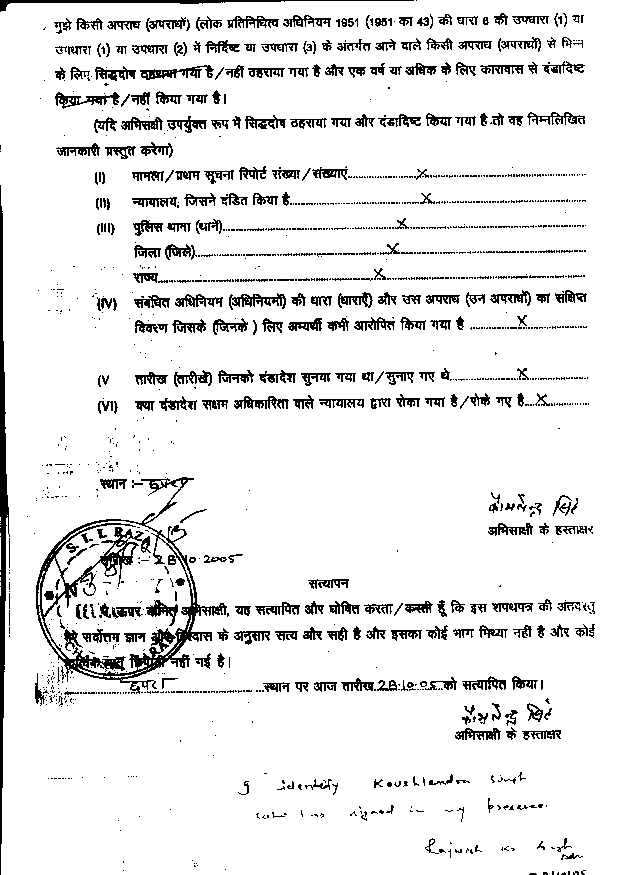 मुझे किसी अपराध (अपराधों) (लोक प्रतिनिधित्व अधिनियम 1951 (1951 का 43) की धारा 8 की उपधारा (1) या
उपधारा (1) या उपधारा (2) में निर्दिष्ट या उपधारा (3) के अंतर्गत आने वाले किसी अपराध (अपराधों) से भिन्न
के लिए सिद्धदोष ठहराया गया है/नहीं ठहराया गया है और एक वर्ष या अधिक के लिए कारावास से दंडादिष्ट
किया गया है/नहीं किया गया है।
(यदि अभिसक्षी उपर्युक्त रूप में सिद्धदोष ठहराया गया और दंडादिष्ट किया गया है तो वह निम्नलिखित
जानकारी प्रस्तुत करेगा)
(I) मामला/प्रथम सूचना रिपोर्ट संख्या/संख्याएं......X......
(II) न्यायालय, जिसने दंडित किया है......X......
(III) पुलिस थाना (थानें)......X......
जिला (जिले)......X......
राज्य......X......
(IV) संबंधित अधिनियम (अधिनियमों) की धारा (धाराएँ) और उस अपराध (उन अपराधों) का संक्षिप्त
विवरण जिसके (जिनके ) लिए अभ्यर्थी कभी आरोपित किया गया है ......X......
(V तारीख (तारीखें) जिनको दंडादेश सुनया गया था/सुनाए गए थे......X......
(VI) क्या दंडादेश सक्षम अधिकारिता वाले न्यायालय द्वारा रोका गया है/रोके गए है...X......
स्थान :- छपरा
कौशलेन्द्र सिंह
अभिसाक्षी के हस्ताक्षर
S. I. I. RAZA
:- 28.10.2005
सत्यापन
अभिसाक्षी, यह सत्यापित और घोषित करता/करती हूँ कि इस शपथपत्र की अंतवस्तु
मेरे सर्वोत्तम ज्ञान और विश्वास के अनुसार सत्य और सही है और इसका कोई भाग मिथ्या नहीं है और कोई
नहीं गई है।
छपरा ......स्थान पर आज तारीख 28.10.05 को सत्यापित किया।
कौशलेन्द्र सिंह
अभिसाक्षी के हस्ताक्षर
I identify Koushlendra Singh
who has signed in my presence.
Rajesh Kr Singh